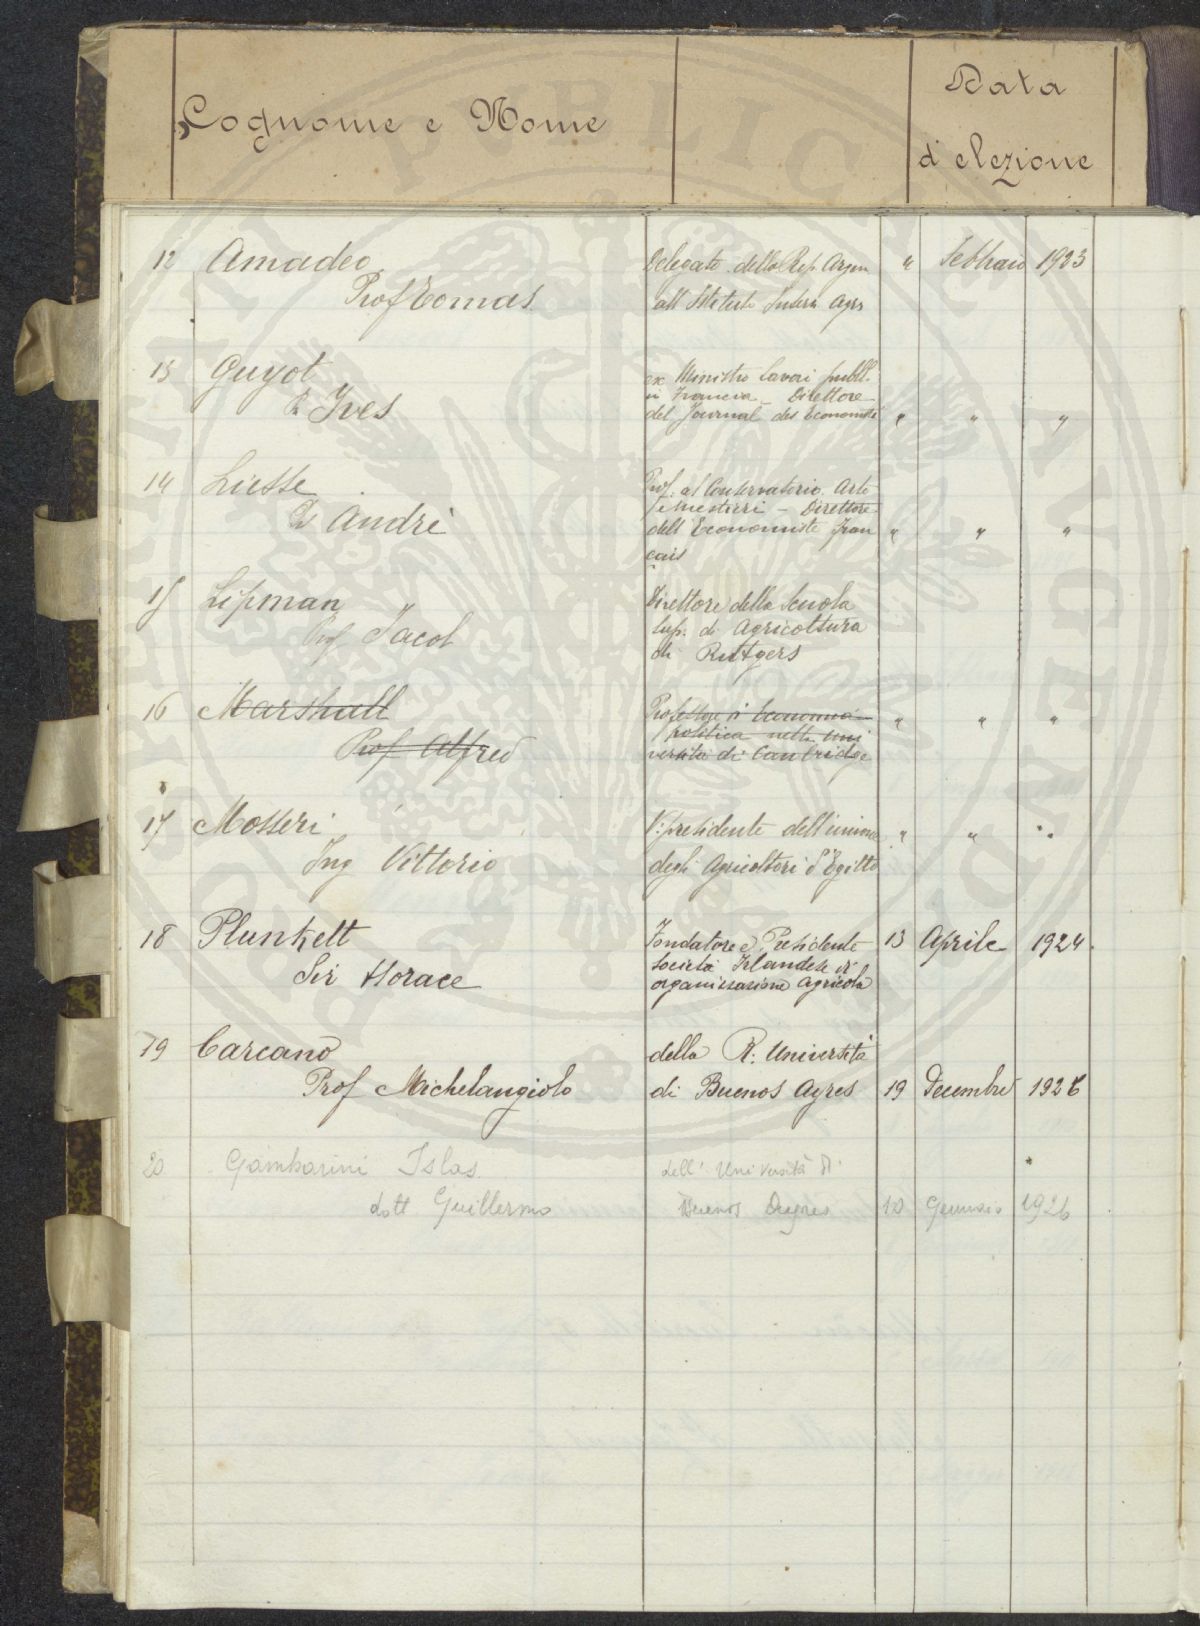 Cognome e Nome
Data
d'elezione
12 Amadeo Delegato della Rep. Argen " Febbraio 1923
Prof Tomas. all' Istituto Intern Agrs
13 Guyot ex Ministro lavori pubbl.
in Francia - Direttore
Yves del Journal des Economiste " " "
14 Liesse Prof. al Conservatorio Arte
e Mestieri - Direttore
André dell'Economiste Fran " " "
çais
15 Lipman Direttore della Scuola
Prof Jacob Sup. di Agricoltura
di Rutgers
16 Marshall Professore di Economia " " "
politica nella Uni
Prof Alfred versità di Cambridge
17 Mosseri V. presidente dell'unione " " "
Ing Vittorio degli Agricoltori d'Egitto
18 Plunkett Fondatore e Presidente 13 Aprile 1924.
società Irlandese di
Sir Horace organizzazione Agricola
19 Carcano della R. Università
Prof Michelangiolo di Buenos Ayres 19 Decembre 1926
20 Gambarini Islas dell' Università di
dott Guillermo Buenos Ayres 10 Gennaio 1926
PUBLICAE AUGENDAE PROSPERITATI